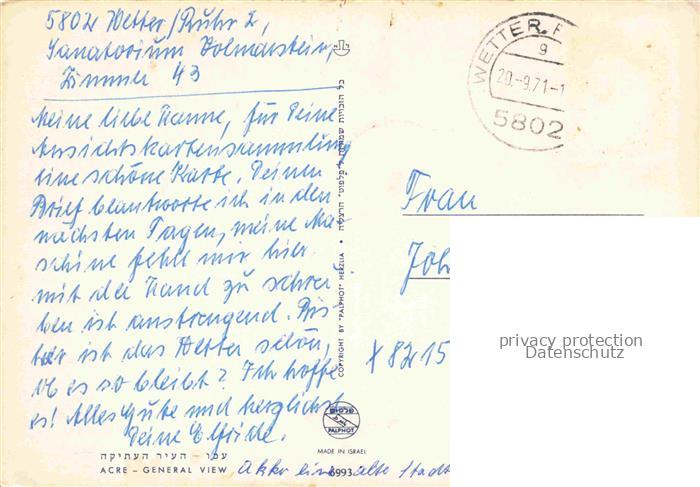 5802 Wetter/Ruhr 2,
Sanatorium Volmarstein,
Zimmer 43
Meine liebe Hanne, für Deine
Ansichtskartensammlung
eine schöne Karte. Deinen
Brief beantworte ich in den
nächsten Tagen, meine Ma-
schine fehlt mir hier.
mit der Hand zu schrei-
ben ist anstrengend. Bis-
her ist das Wetter schön,
ob es so bleibt? Ich hoffe
es! Alles Gute und herzlichst
Deine Elfride.
עכו - העיר העתיקה
ACRE - GENERAL VIEW
Akko eine alte Stadt
כל הזכויות שמורות ל"פלפוט" הרצליה
COPYRIGHT BY "PALPHOT" HERZLIA
פלפוט
PALPHOT
MADE IN ISRAEL
6993
WETTER
g
20.-9.71-1
5802
Frau
Joh
X 8215
privacy protection
Datenschutz